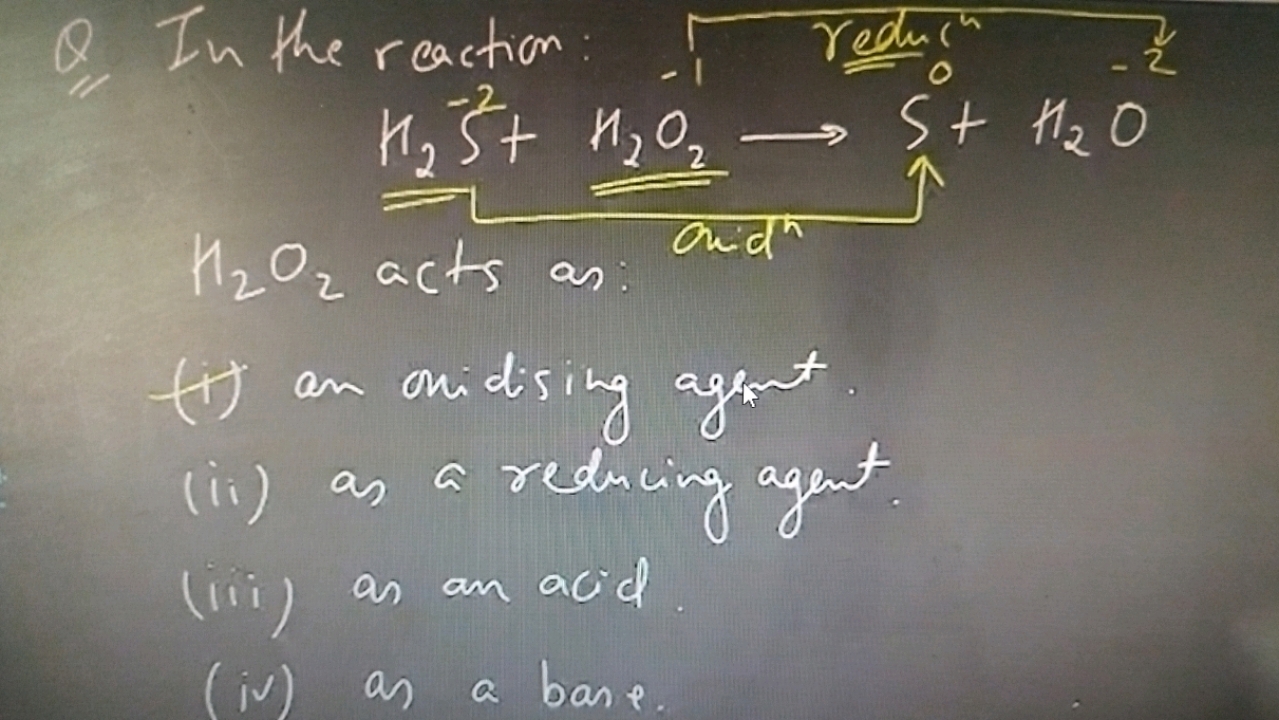 Q In the reaction: reducⁿ
-2 -1 0 -2
H₂S + H₂O₂ → S + H₂O
oxidⁿ
H₂O₂ acts as:
(i) an oxidising agent.
(ii) as a reducing agent.
(iii) as an acid.
(iv) as a base.